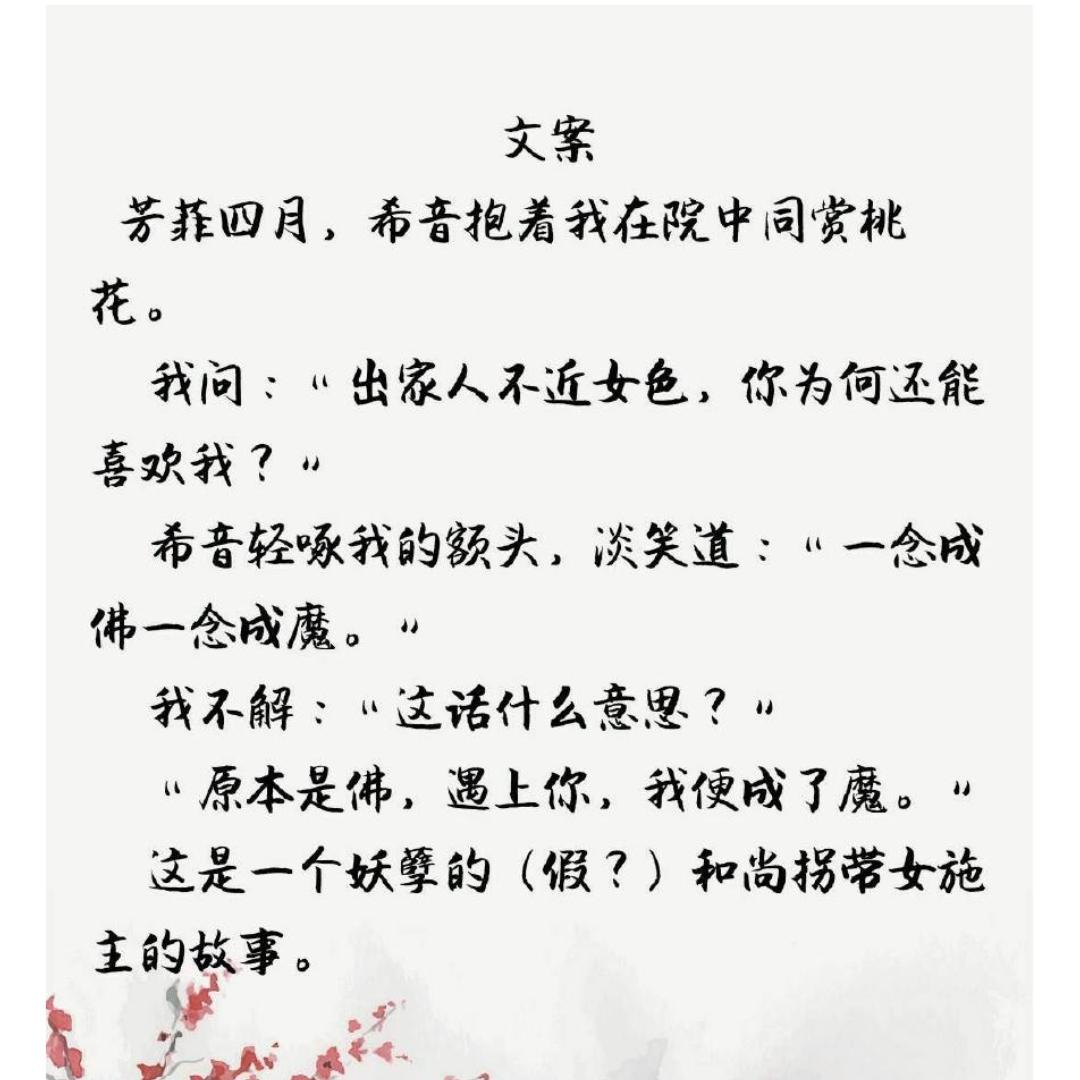 文案
芳菲四月，希音抱着我在院中同赏桃
花。
我问：“出家人不近女色，你为何还能
喜欢我？”
希音轻啄我的额头，淡笑道：“一念成
佛一念成魔。”
我不解：“这话什么意思？”
“原本是佛，遇上你，我便成了魔。”
这是一个妖孽的（假？）和尚拐带女施
主的故事。